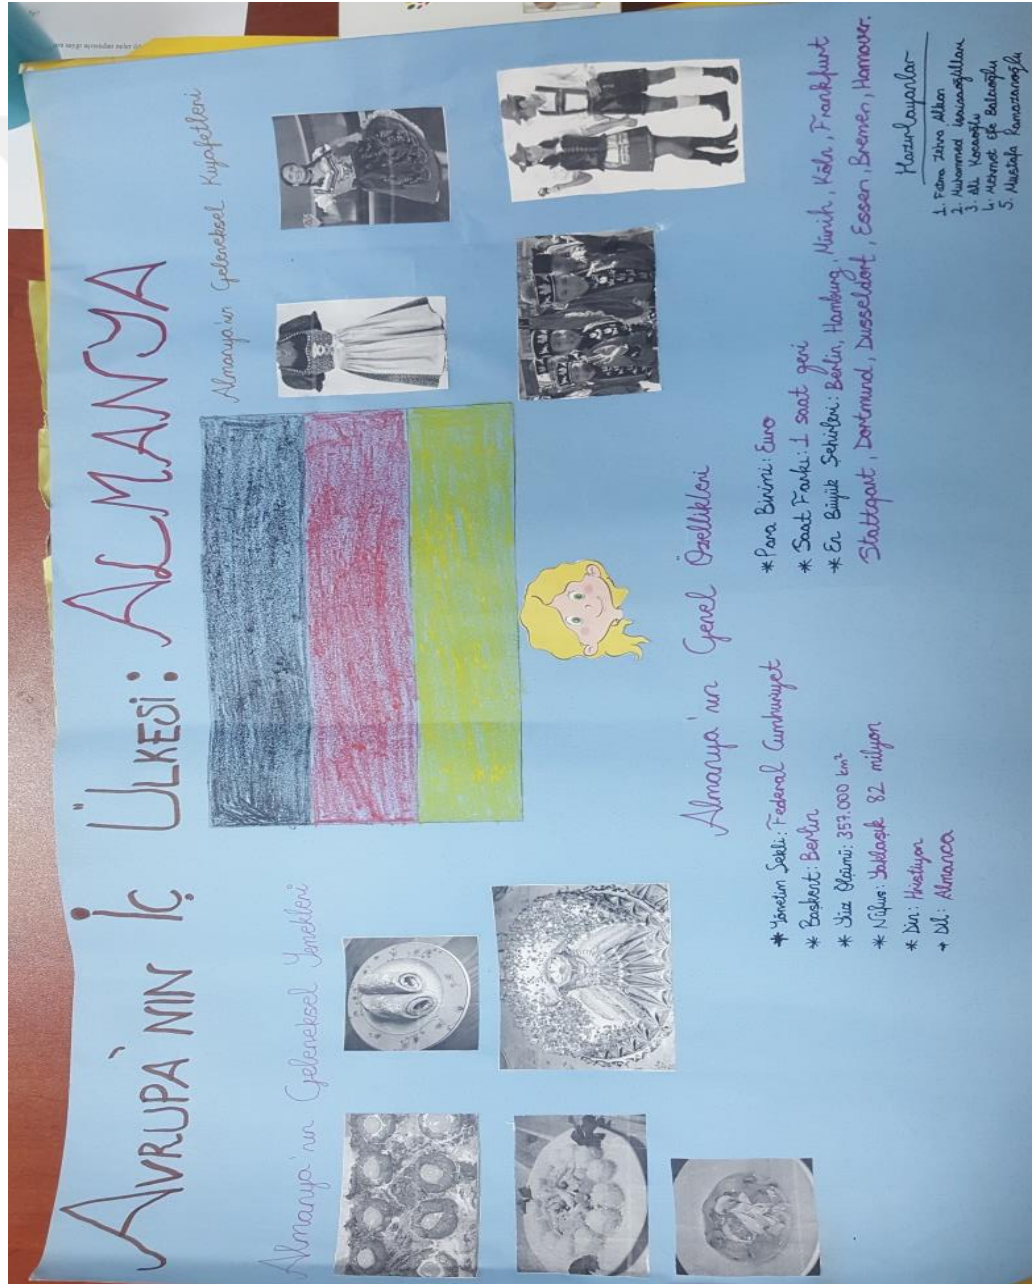 AVRUPA'NIN İÇ ÜLKESİ: ALMANYA
Almanya'nın Geleneksel Yemekleri
Almanya'ın Geleneksel Kıyafetleri
Almanya'nın Genel Özellikleri
* Yönetim Şekli: Federal Cumhuriyet
* Başkent: Berlin
* Yüz Ölçümü: 357.000 km²
* Nüfus: Yaklaşık 82 milyon
* Din: Hristiyan
* Dil: Almanca
* Para Birimi: Euro
* Saat Farkı: 1 saat geri
* En Büyük Şehirleri: Berlin, Hamburg, Münih, Köln, Frankfurt
Stattgart, Dortmund, Dusseldort, Essen, Bremen, Hannover.
Hazırlayanlar
1. Fatma Zehra
2. Muhammed
3. Ali Kocaoğlu
4. Mehmet Efe Balcıoğlu
5. Mustafa Ramazanoğlu